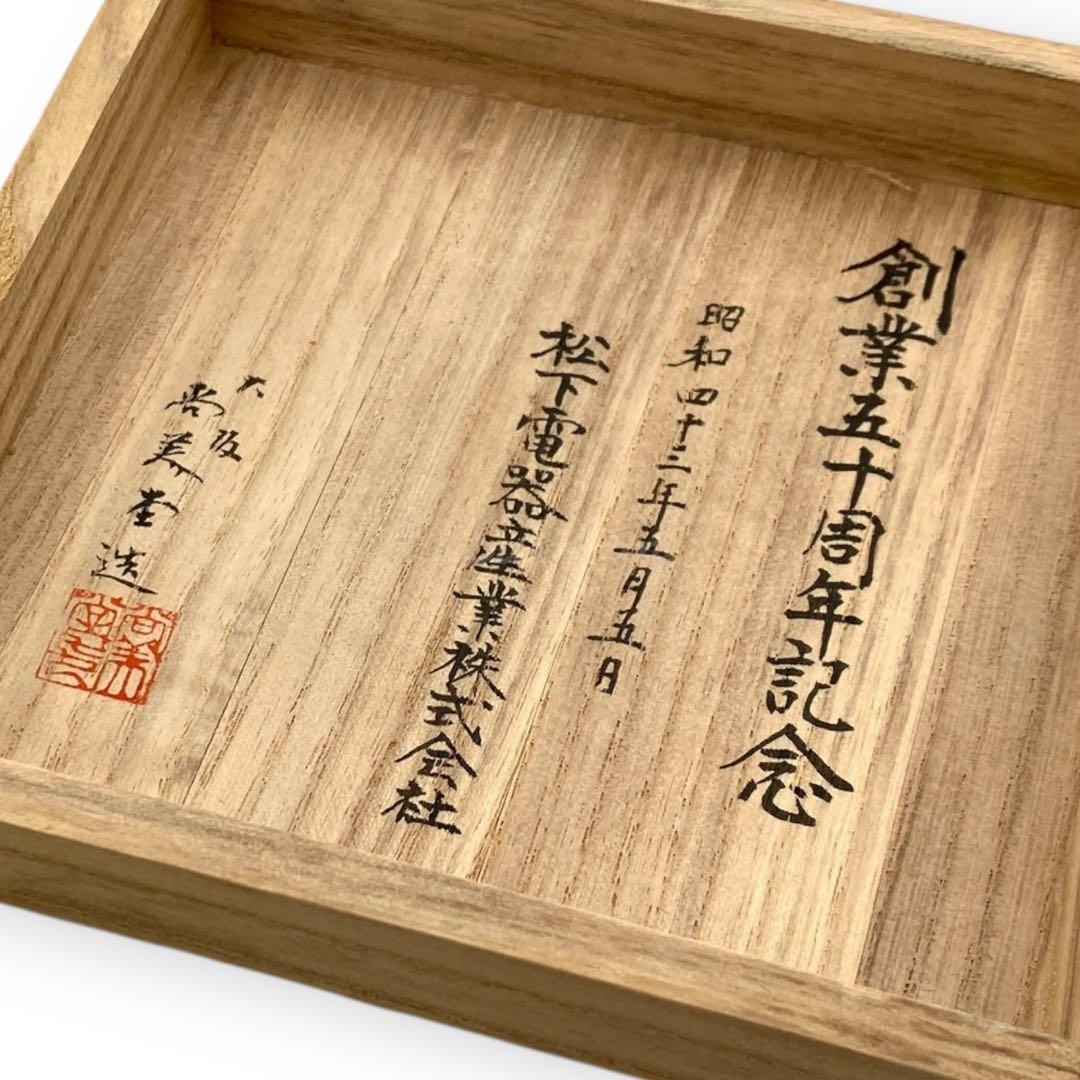 創業五十周年記念
昭和四十三年五月五日
松下電器産業株式会社
大阪
尚美堂造